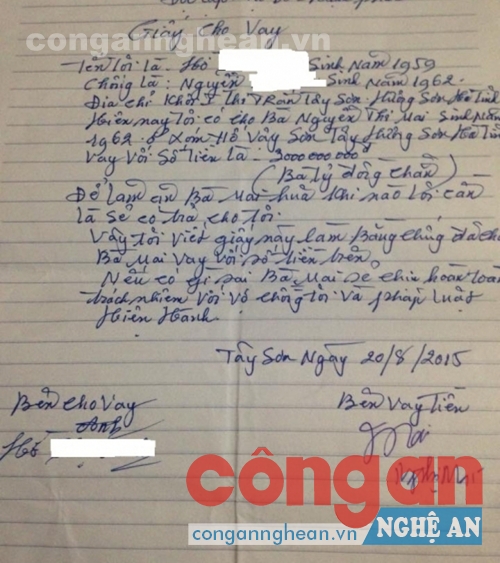 congannghean.vn
Giấy Cho Vay
Tên tôi là. Hồ Sinh Năm 1959
Chồng là: Nguyễn Sinh Năm 1962.
Địa chỉ Khối 1 Thị Trấn Tây Sơn Hương Sơn Hà Tĩnh
Hiện nay tôi có cho Bà Nguyễn Thị Mai Sinh Năm
1962. ở Xóm Hồ Vậy Sơn Tây Hương Sơn Hà Tĩnh
Vay với Số tiền là - 3000000000đ
(Ba tỷ đồng chẵn)
Để làm ăn Bà Mai hứa khi nào tôi cần
là sẽ có trả cho tôi.
Vậy tôi viết giấy này làm Bằng chứng đã cho
Bà Mai Vay với số tiền trên.
Nếu có gì sai Bà Mai sẽ chịu hoàn toàn
trách nhiên với vợ chồng tôi và pháp luật
Hiên Hành.
Tây Sơn Ngày 20/8/2015
Bên cho Vay
Bên Vay Tiền
Hồ
công an
congannghean.vn
NGHỆ AN